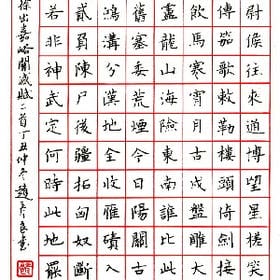 尉候往來通博望星槎笑
傳笳歌敕勒樓頭倚劍接
飲馬寒宵月古戍盤雕大
盧龍山海險東南誰比此
舊塞委荒煙今日陽關古
鴻溝分漢地全收雁磧入
貳負陳尸後疆拓匈奴斷
若非神武定何時此地罷
徐出嘉峪關感賦二首丁丑仲冬趙良書